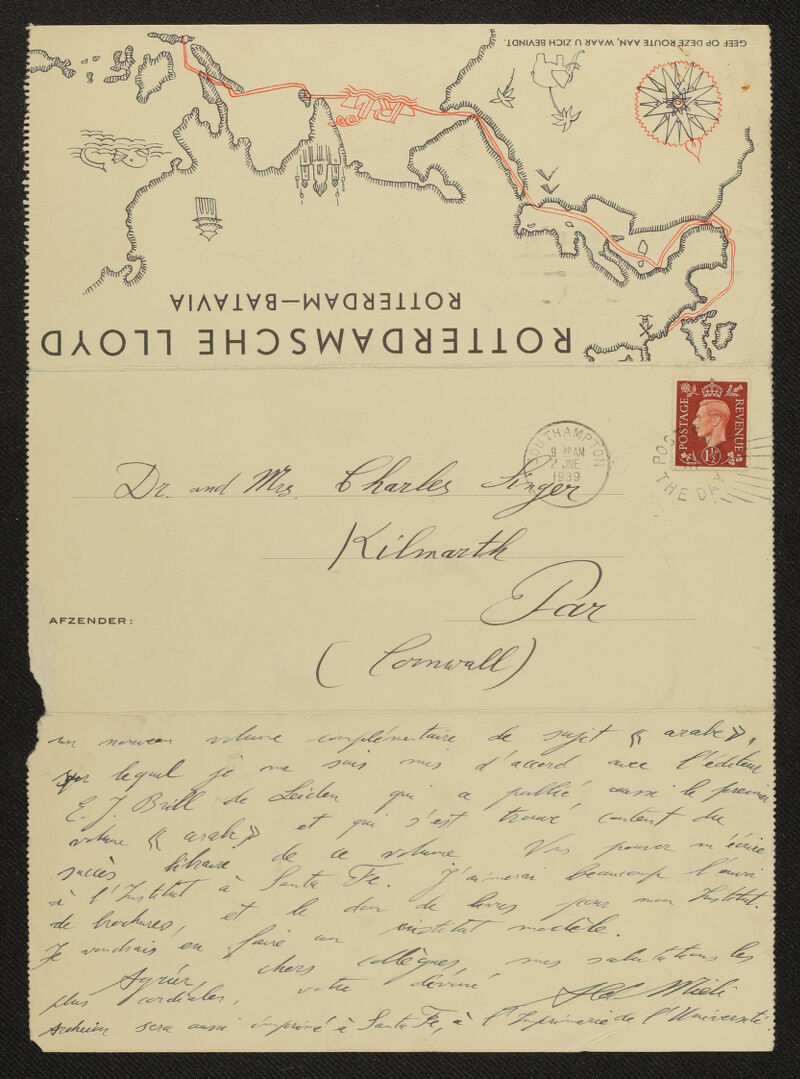 GEEF OP DEZE ROUTE AAN, WAAR U ZICH BEVINDT.
RLL
ROTTERDAM—BATAVIA
ROTTERDAMSCHE LLOYD
SOUTHAMPTON
9 30 AM
2 JNE
1939
POSTAGE
REVENUE
1½
POS
THE DAY
Dr. and Mrs. Charles Singer
Kilmarth
Par
(Cornwall)
AFZENDER:
un nouveau volume complémentaire de sujet « arabe »,
sur lequel je me suis mis d'accord avec l'éditeur
E. J. Brill de Leiden qui a publié aussi le premier
volume « arabe » et qui s'est trouvé content du
succès libraire de ce volume. Vous pouvez m'écrire
à l'Institut à Santa Fe. J'aimerai beaucoup l'envoi
de brochures, et le don de livres pour mon Institut.
Je voudrais en faire un institut modèle.
Agréez, chers collègues, mes salutations les
plus cordiales, votre dévoué Aldo Mieli
Archeion sera aussi imprimé à Santa Fe, à l'Imprimerie de l'Université.